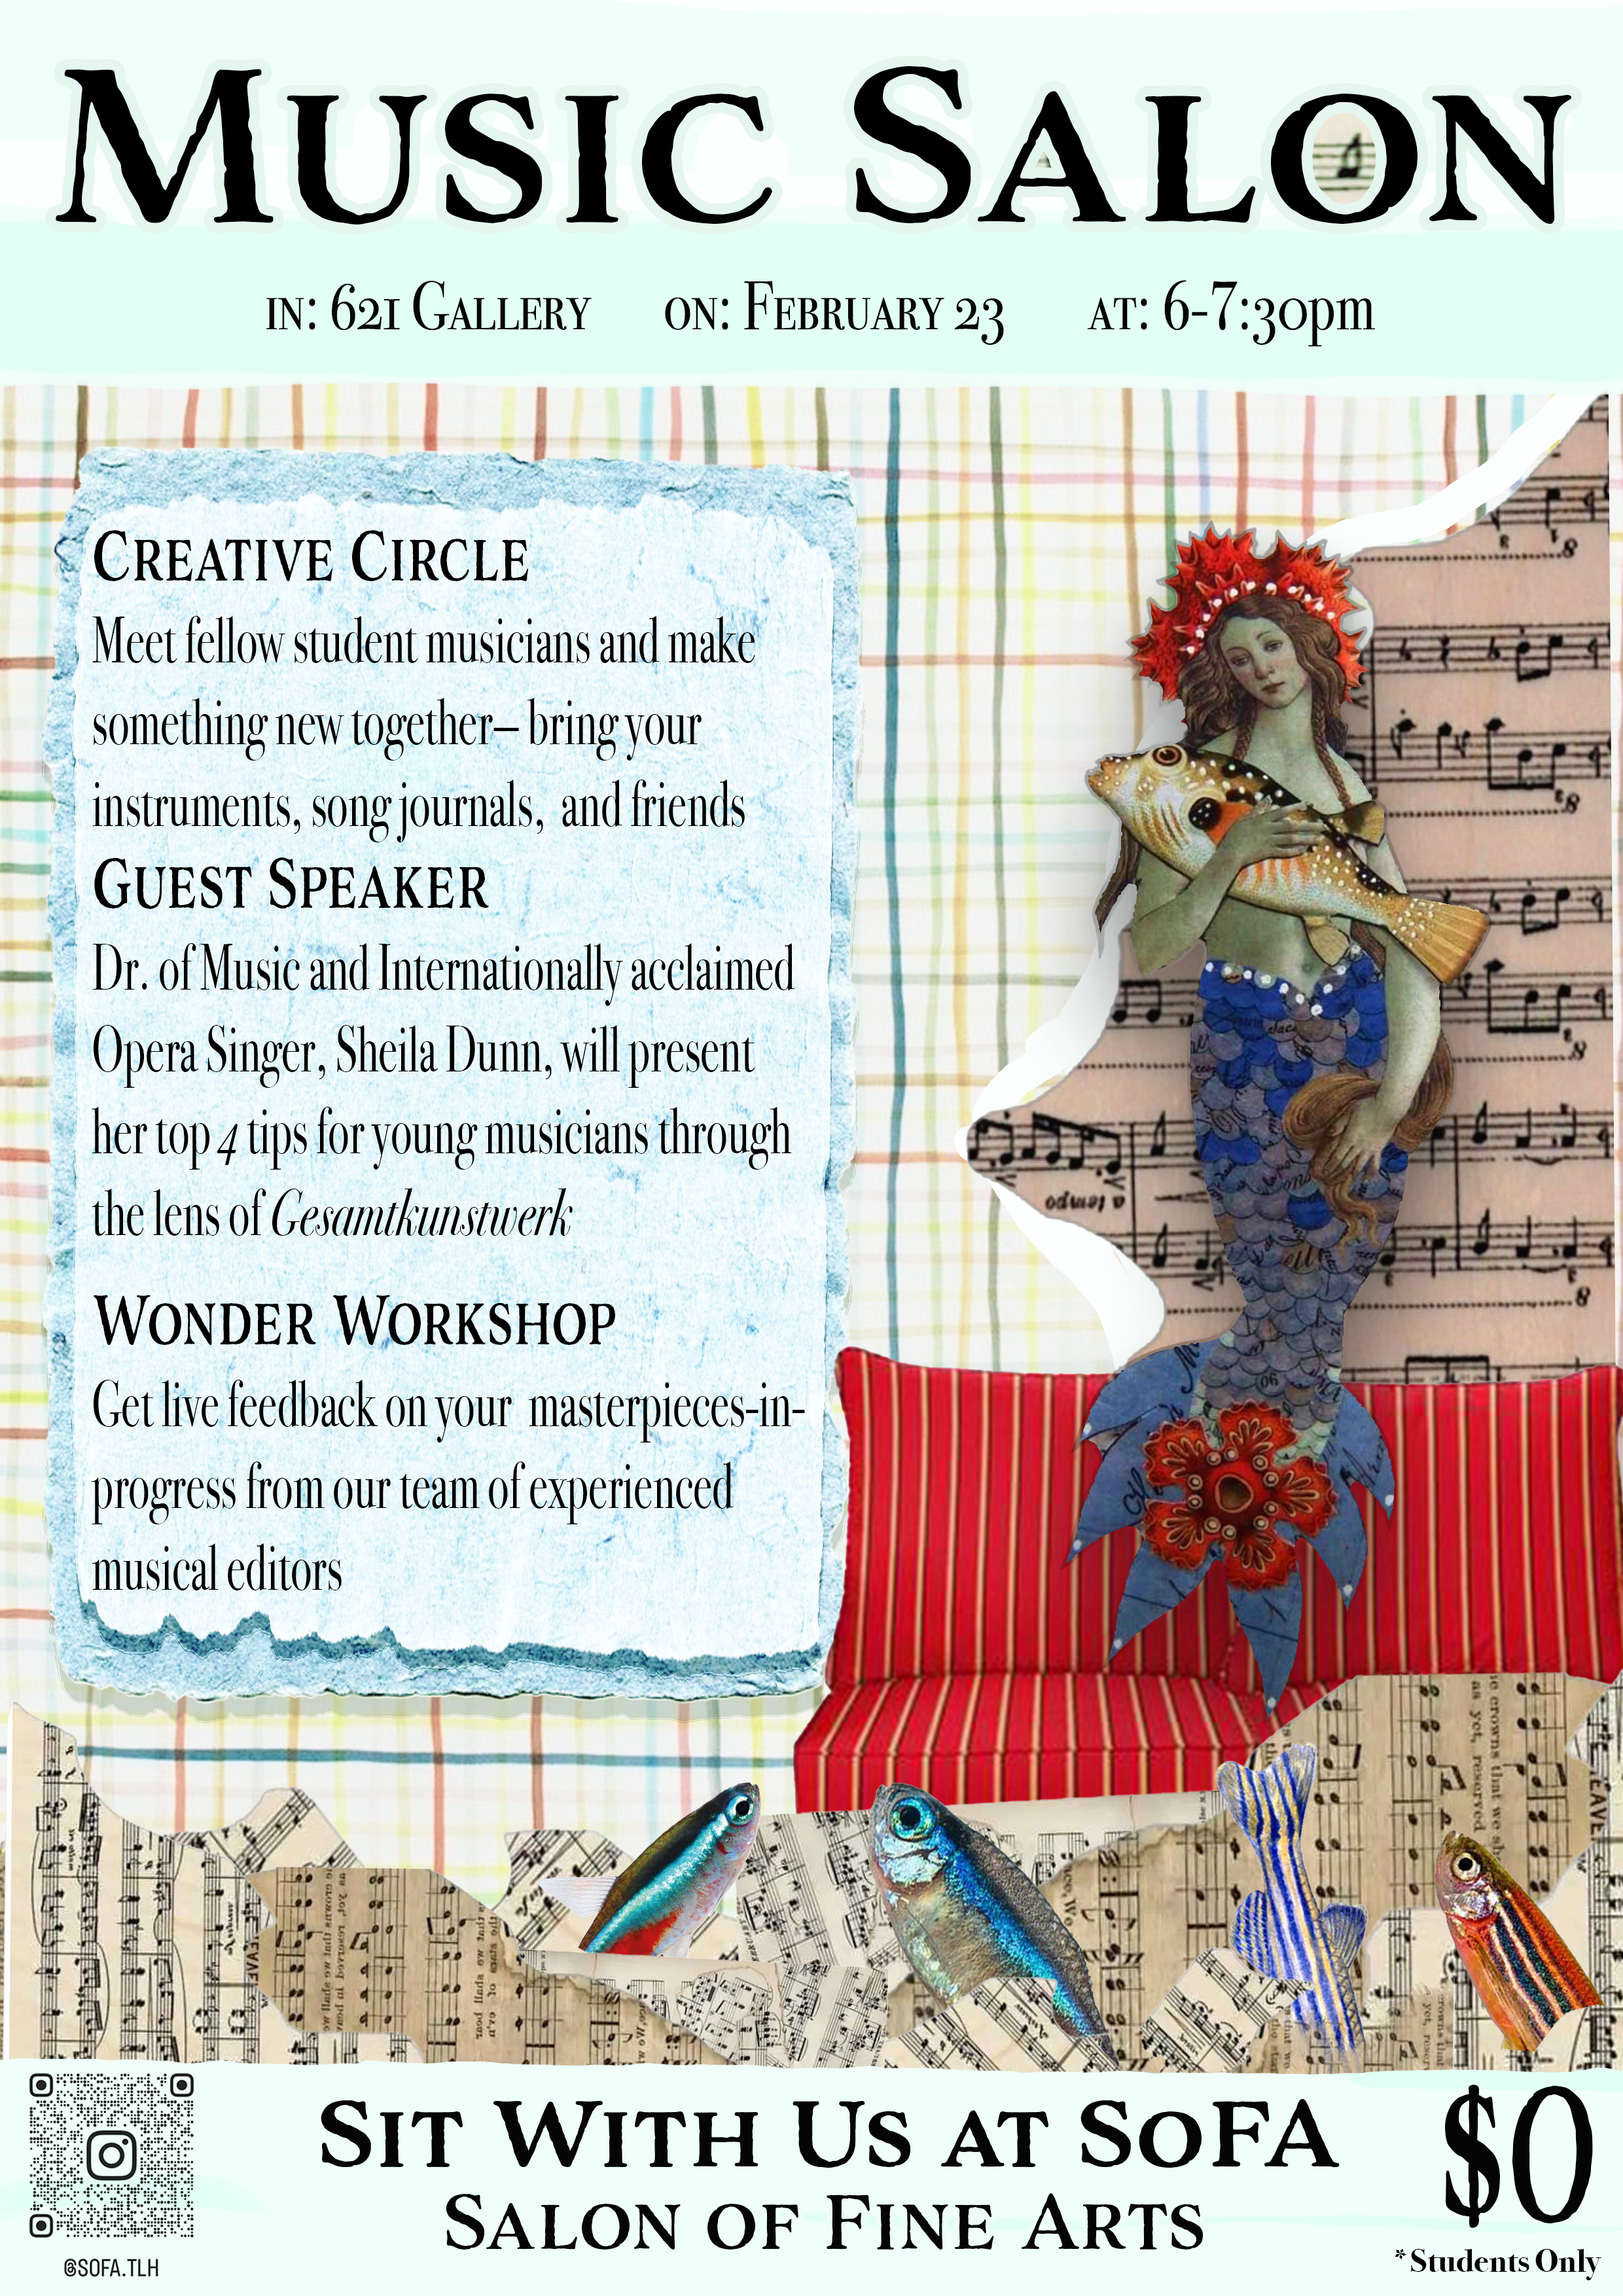 MUSIC SALON
IN: 621 GALLERY ON: FEBRUARY 23 AT: 6-7:30pm
CREATIVE CIRCLE
Meet fellow student musicians and make
something new together– bring your
instruments, song journals, and friends
GUEST SPEAKER
Dr. of Music and Internationally acclaimed
Opera Singer, Sheila Dunn, will present
her top 4 tips for young musicians through
the lens of Gesamtkunstwerk
WONDER WORKSHOP
Get live feedback on your masterpieces-in-
progress from our team of experienced
musical editors
a tempo
SIT WITH US AT SOFA
SALON OF FINE ARTS
$0
*Students Only
@SOFA.TLH